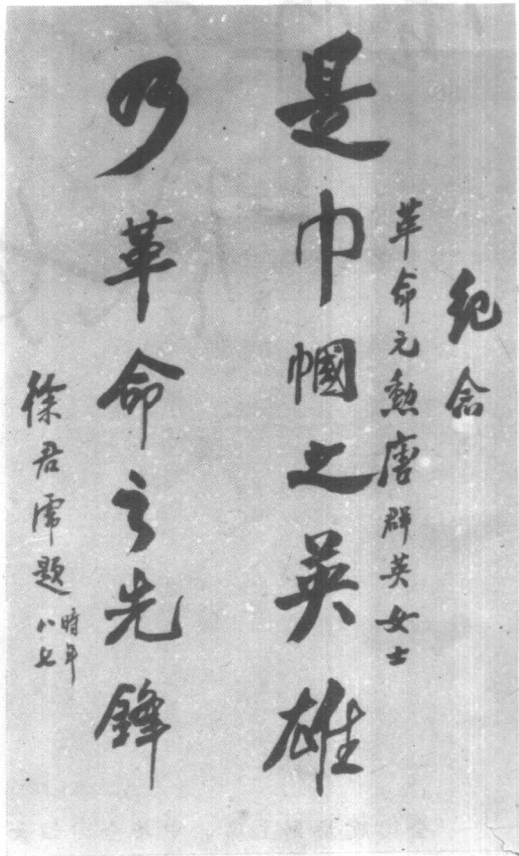 纪念
革命元勲唐群英女士
是巾帼之英雄
乃革命之先锋
徐君虎题
時年
八七